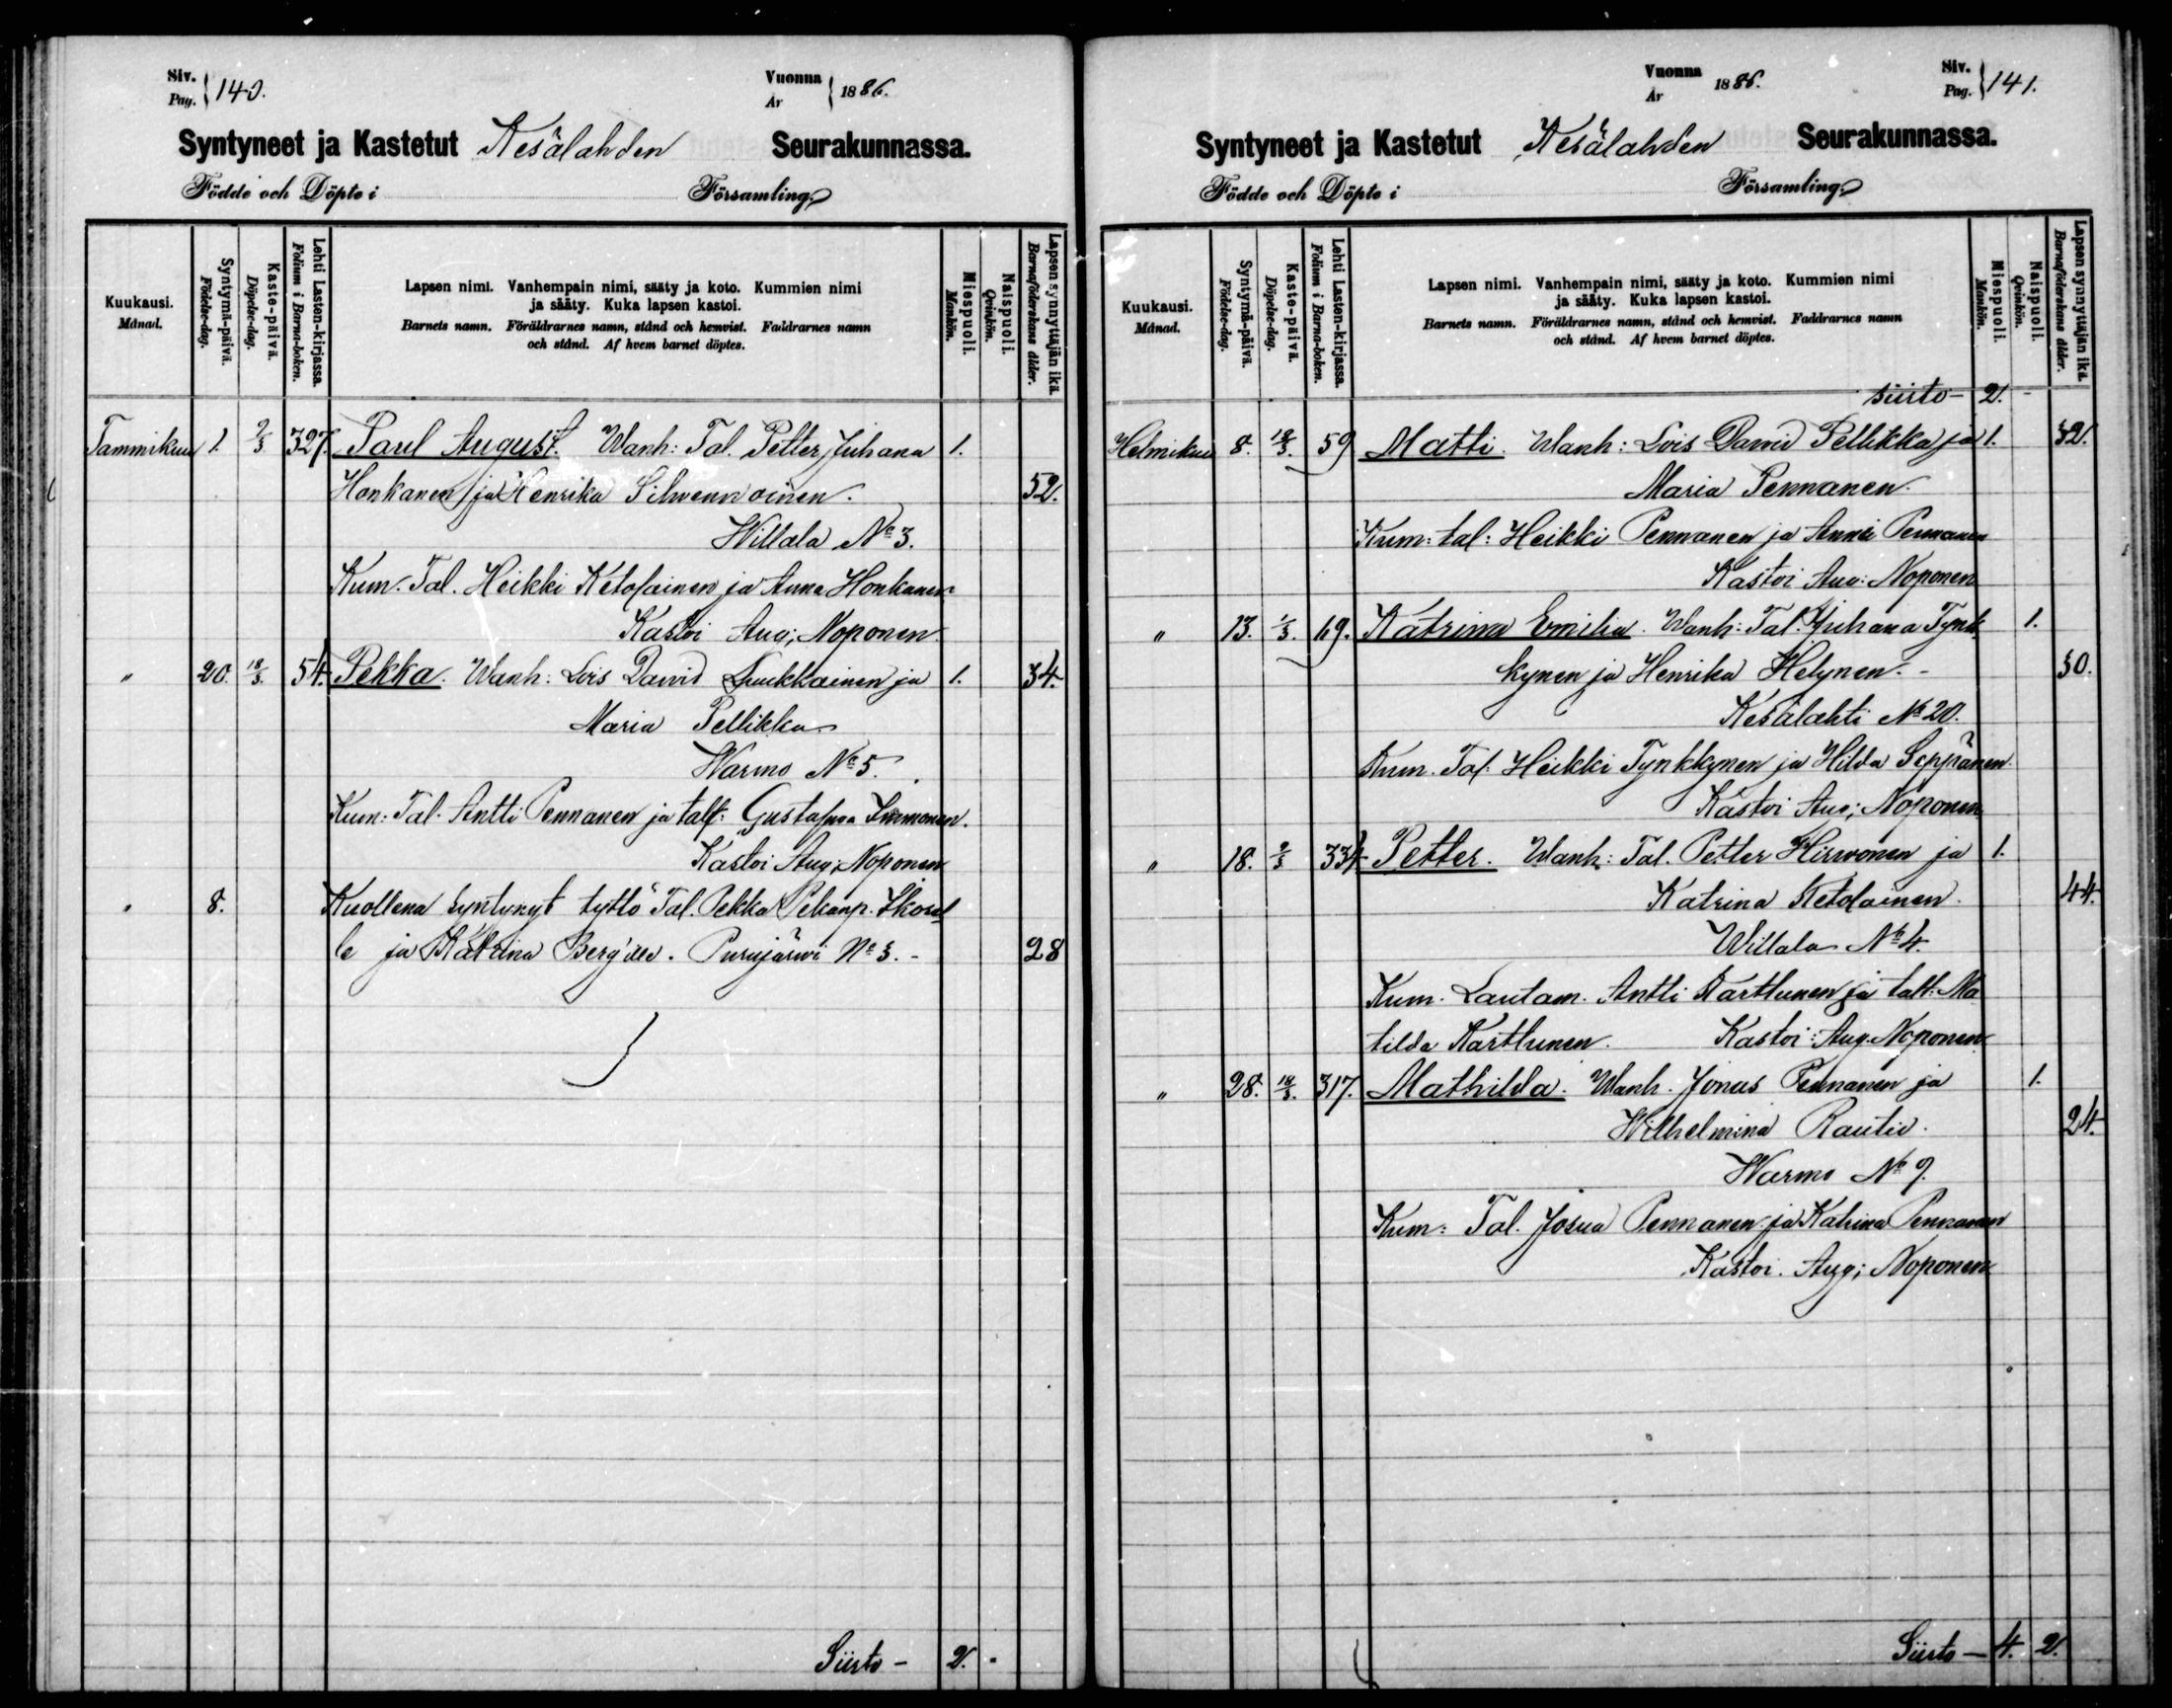 Siv. Pag. 140.
Vuonna År 1886.
Syntyneet ja Kastetut Kesälahden Seurakunnassa.
Födde och Döpte i Församling.
Kuukausi. Månad.
Syntymä-päivä. Födelse-dag.
Kaste-päivä. Döpelse-dag.
Lehti Lasten-kirjassa. Folium i Barna-boken.
Lapsen nimi. Vanhempain nimi, sääty ja koto. Kummien nimi
ja sääty. Kuka lapsen kastoi.
Barnets namn. Föräldrarnes namn, stånd och hemvist. Faddrarnes namn
och stånd. Af hvem barnet döptes.
Miespuoli. Mankön.
Naispuoli. Qvinkön.
Lapsen synnyttäjän ikä. Barnaföderskans ålder.
Tammikuu 1. 9/3 327. Paul August. Wanh: Tal. Petter Juhana 1.
Honkanen ja Henrika Silvennoinen. 52.
Willala No 3.
Kum. Tal. Heikki Ketolainen ja Anna Honkanen
Kastoi Aug; Noponen.
" 20. 18/3. 54. Pekka. Wanh: Lois David Luukkainen ja 1. 34.
Maria Pellikka
Warmo No 5.
Kum: Tal. Antti Pennanen ja talt: Gustafwa Immonen.
Kastoi Aug; Noponen
" 8. Kuollena syntynyt tyttö Tal. Pekka Pekanp.
le ja Katrina Purujärwi No 3. - 28
Siirto - 2. -
Vuonna År 1886.
Siv. Pag. 141.
Syntyneet ja Kastetut Kesälahden Seurakunnassa.
Födde och Döpte i Församling.
Kuukausi. Månad.
Syntymä-päivä. Födelse-dag.
Kaste-päivä. Döpelse-dag.
Lehti Lasten-kirjassa. Folium i Barna-boken.
Lapsen nimi. Vanhempain nimi, sääty ja koto. Kummien nimi
ja sääty. Kuka lapsen kastoi.
Barnets namn. Föräldrarnes namn, stånd och hemvist. Faddrarnes namn
och stånd. Af hvem barnet döptes.
Miespuoli. Mankön.
Naispuoli. Qvinkön.
Lapsen synnyttäjän ikä. Barnaföderskans ålder.
siirto - 2. -
Helmikuu 8. 18/3. 59 Matti. Wanh: Lois David Pellikka ja 1. 32.
Maria Pennanen.
Kum: tal: Heikki Pennanen ja Anna Pennanen
Kastoi Aug: Noponen
" 13. 1/3. 19. Katrina Emilia. Wanh: Tal. Juhana Tynk 1.
kynen ja Henrika Helynen. - 30.
Kesälahti No 20.
Kum. Tal. Heikki Tynkkynen ja Hilda Seppänen
Kastoi Aug; Noponen
" 18. 9/3 334 Petter. Wanh: Tal. Petter Hirwonen ja 1.
Katrina Ketolainen. 44.
Willala No 4.
Kum. Lautam. Antti Karttunen ja talt: Ma
tilda Karttunen. Kastoi: Aug. Noponen
" 28. 14/3. 317. Mathilda. Wanh. Jonus Pennanen ja 1.
Wilhelmina Rautio. 24.
Warmo No 9.
Kum: Tal. Josua Pennanen ja Katrina Pennanen
Kastoi. Aug; Noponen
Siirto - 4. 2.